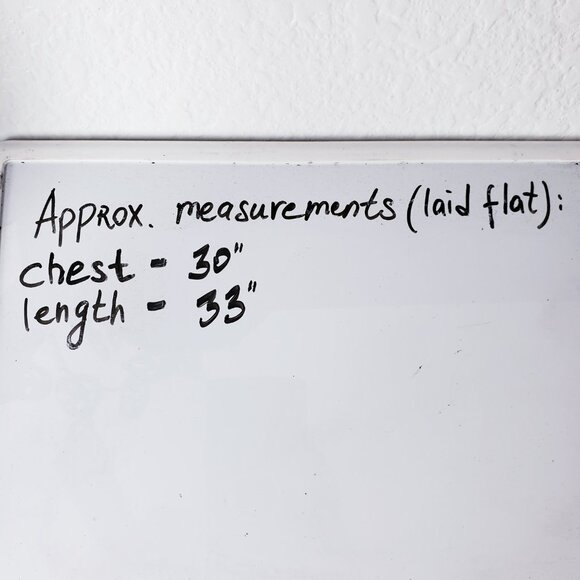 Approx. measurements (laid flat):
chest - 30"
length - 33"